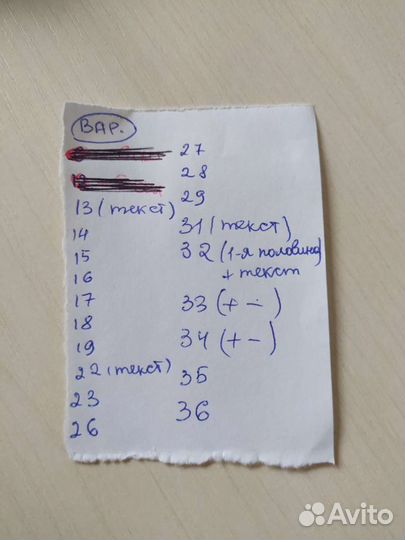 ВАР.
13 (текст)
14
15
16
17
18
19
22 (текст)
23
26
27
28
29
31 (текст)
32 (1-я половина)
+ текст
33 (+ -)
34 (+ -)
35
36
Avito